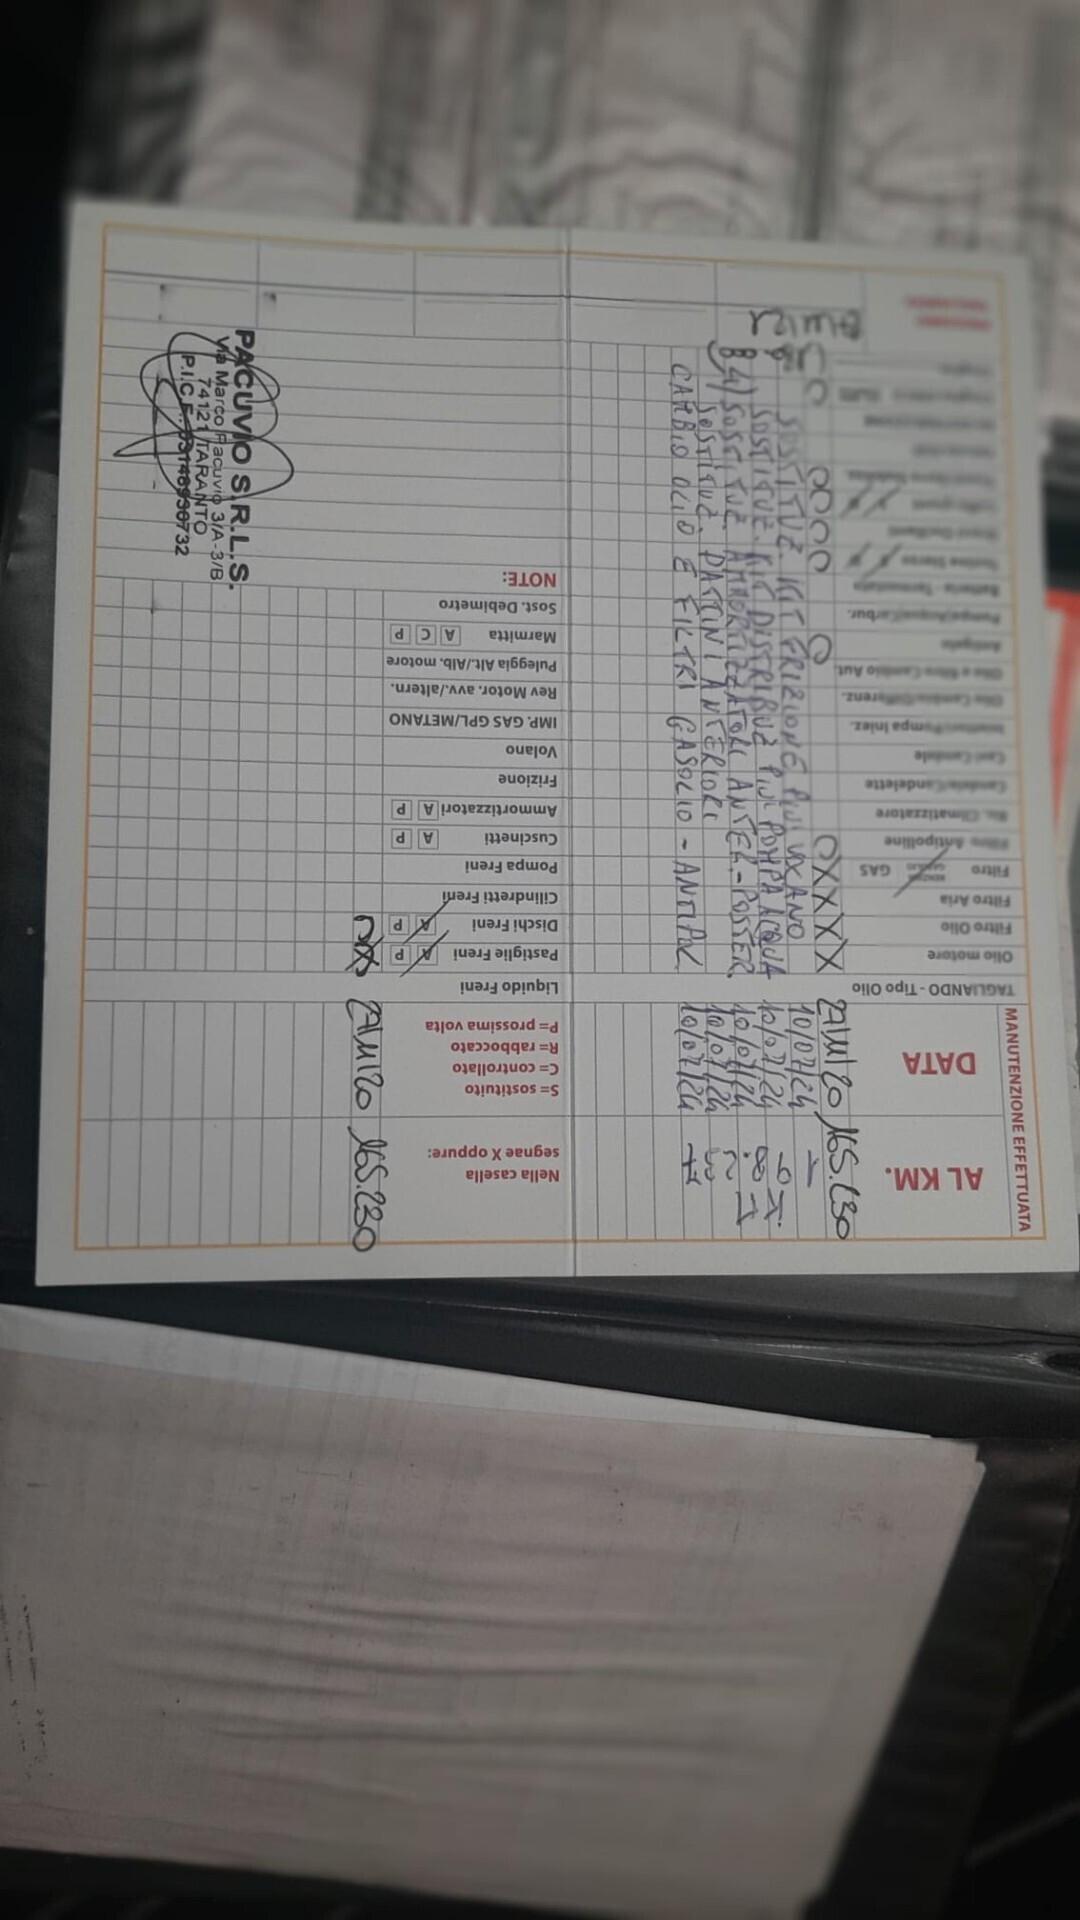 MANUTENZIONE EFFETTUATA
AL KM.
DATA
TAGLIANDO - Tipo Olio
Olio motore
Filtro Olio
Filtro Aria
Filtro GAS
Filtro Antipolline
Ric. Climatizzatore
Candele/Candelette
Cavi Candele
Iniettori/Pompa Iniez.
Olio Cambio/Differenz.
Olio e filtro Cambio Aut.
Antigelo
Pompa/Acqua/Carbur.
Batteria - Termostato
165.230
10/07/24 SOSTITUZ. KIT FRIZIONE PIU' VOLANO
10/07/24 SOSTITUZ. KIT DISTRIBUZ PIU' POMPA ACQUA
10/07/24 SOSTITUZ. AMMORTIZZATORI ANTER.-POSTER.
10/07/24 SOSTITUZ. PATTINI ANTERIORI
10/07/24 CAMBIO OLIO E FILTRI GASOLIO - ANTIPOL
Nella casella
segnae X oppure:
S= sostituito
C= controllato
R= rabboccato
P= prossima volta
Liquido Freni
Pastiglie Freni A P
Dischi Freni A P
Cilindretti Freni
Pompa Freni
Cuscinetti A P
Ammortizzatori A P
Frizione
Volano
IMP. GAS GPL/METANO
Rev Motor. avv./altern.
Puleggia Alt./Alb. motore
Marmitta A C P
Sost. Debimetro
NOTE:
165.230
PACUVIO S.R.L.S.
Via Marco Pacuvio 3/A-3/B
74121 TARANTO